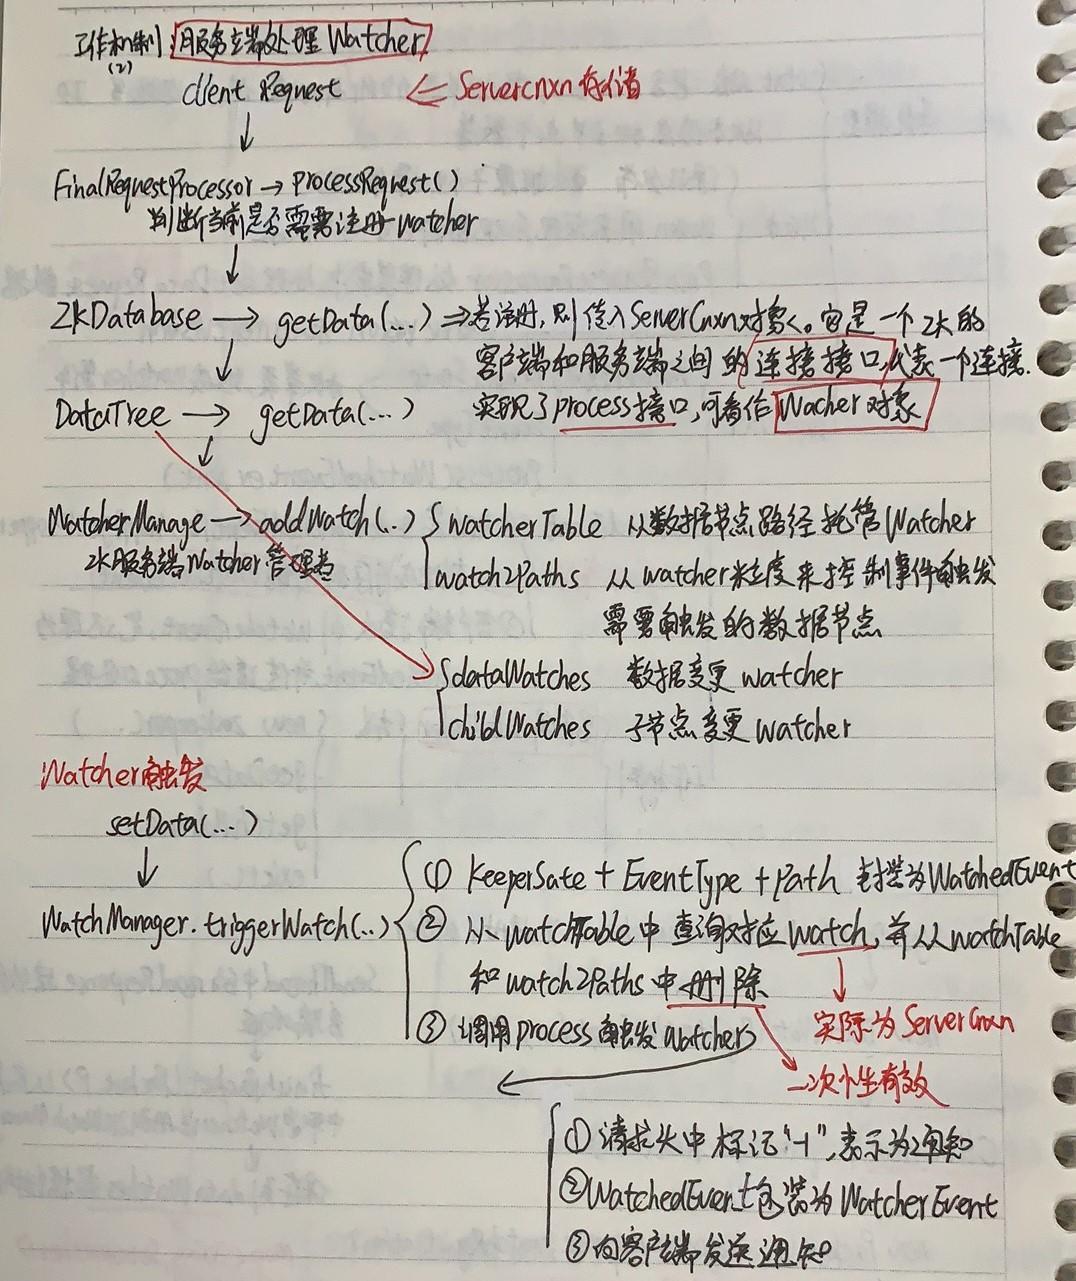 工作机制:服务端处理Watcher
(2)
client Request ⇐ Servercnxn存储
↓
FinalRequestProcessor → processRequest()
判断当前是否需要注册watcher
↓
ZkDatabase → getData(...) ⇒若注册,则传入ServerCnxn对象。它是一个zk的
客户端和服务端之间的连接接口,代表一个连接.
↓
DataTree → getData(...) 实现了process接口,可看作Wacher对象
↓
WatcherManage → addWatch(..) { watcherTable 从数据节点路径托管Watcher
zk服务端Watcher管理者
watch2Paths 从watcher粒度来控制事件触发
需要触发的数据节点
{ dataWatches 数据变更watcher
childWatches 子节点变更watcher
Watcher触发
setData(...)
↓
① KeeperSate + EventType + Path 封装为WatchedEvent
WatchManager.triggerWatch(..) { ② 从watchTable中查询对应watch,并从watchTable
和watch2Paths中删除
实际为ServerCnxn
③ 调用process触发Watcher
一次性有效
① 请求头中标记"-1",表示为通知
②WatchedEvent包装为WatcherEvent
③向客户端发送通知